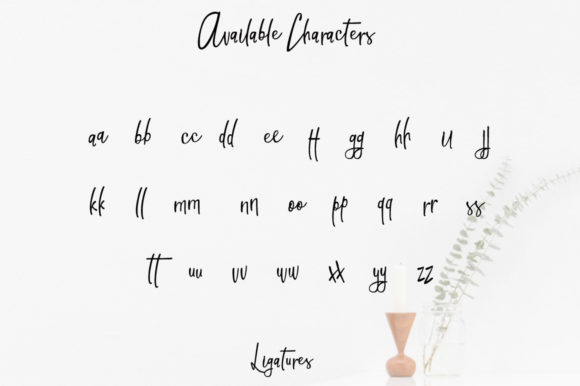 Available Characters
aa bb cc dd ee ff gg hh ii jj
kk ll mm nn oo pp qq rr ss
tt uu vv ww xx yy zz
Ligatures